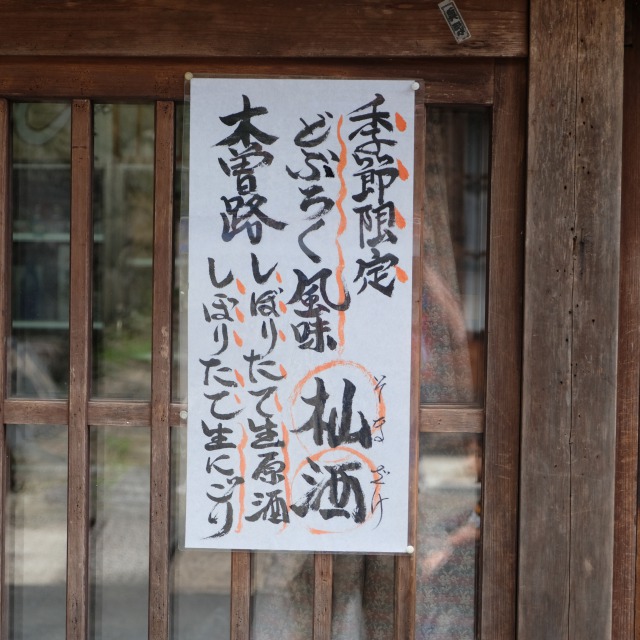 季節限定
どぶろく風味
杣酒
そまざけ
木曽路
しぼりたて生原酒
しぼりたて生にごり